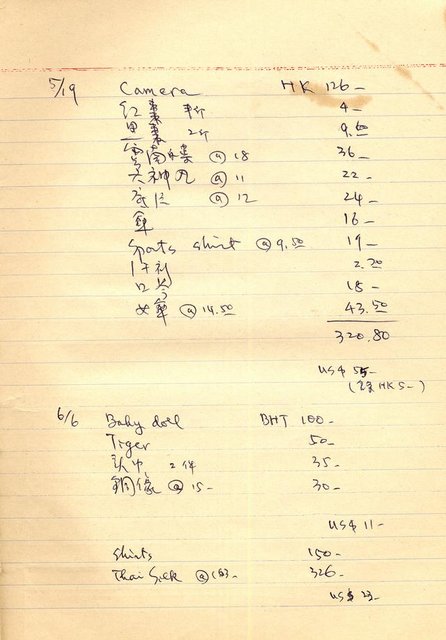 5/19 Camera HK 126-
红棗 半斤 4-
黑棗 2斤 9.60
雲南白藥 @ 18 36-
六神丸 @ 11 22-
@ 12 24-
傘 16-
Sports shirt @ 9.50 19-
2.20
口琴 18-
女傘 @ 14.50 43.50
320.80
US$ 55
HK 5-)
6/6 Baby doll BHT 100-
Tiger 50-
头巾 2件 35-
銅像 @ 15- 30-
US$ 11-
Shirts 150-
Thai Silk @ 163- 326-
US$ 23-